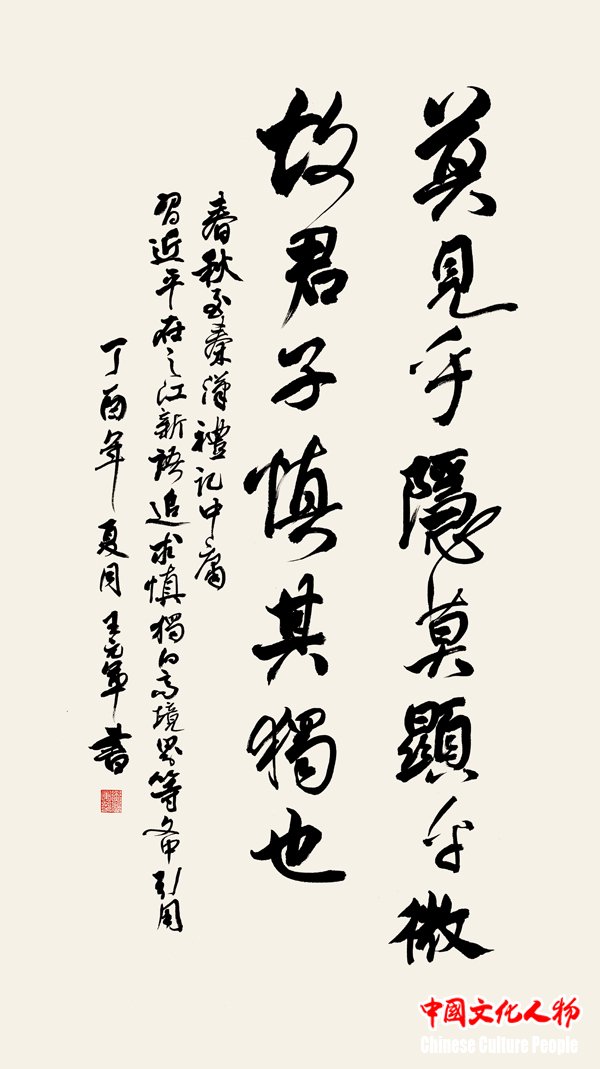 莫見乎隱莫顯乎微
故君子慎其獨也
春秋至秦漢禮記中庸
習近平在之江新語追求慎獨的高境界等文中引用
丁酉年夏月王元軍書
中國文化人物
Chinese Culture People